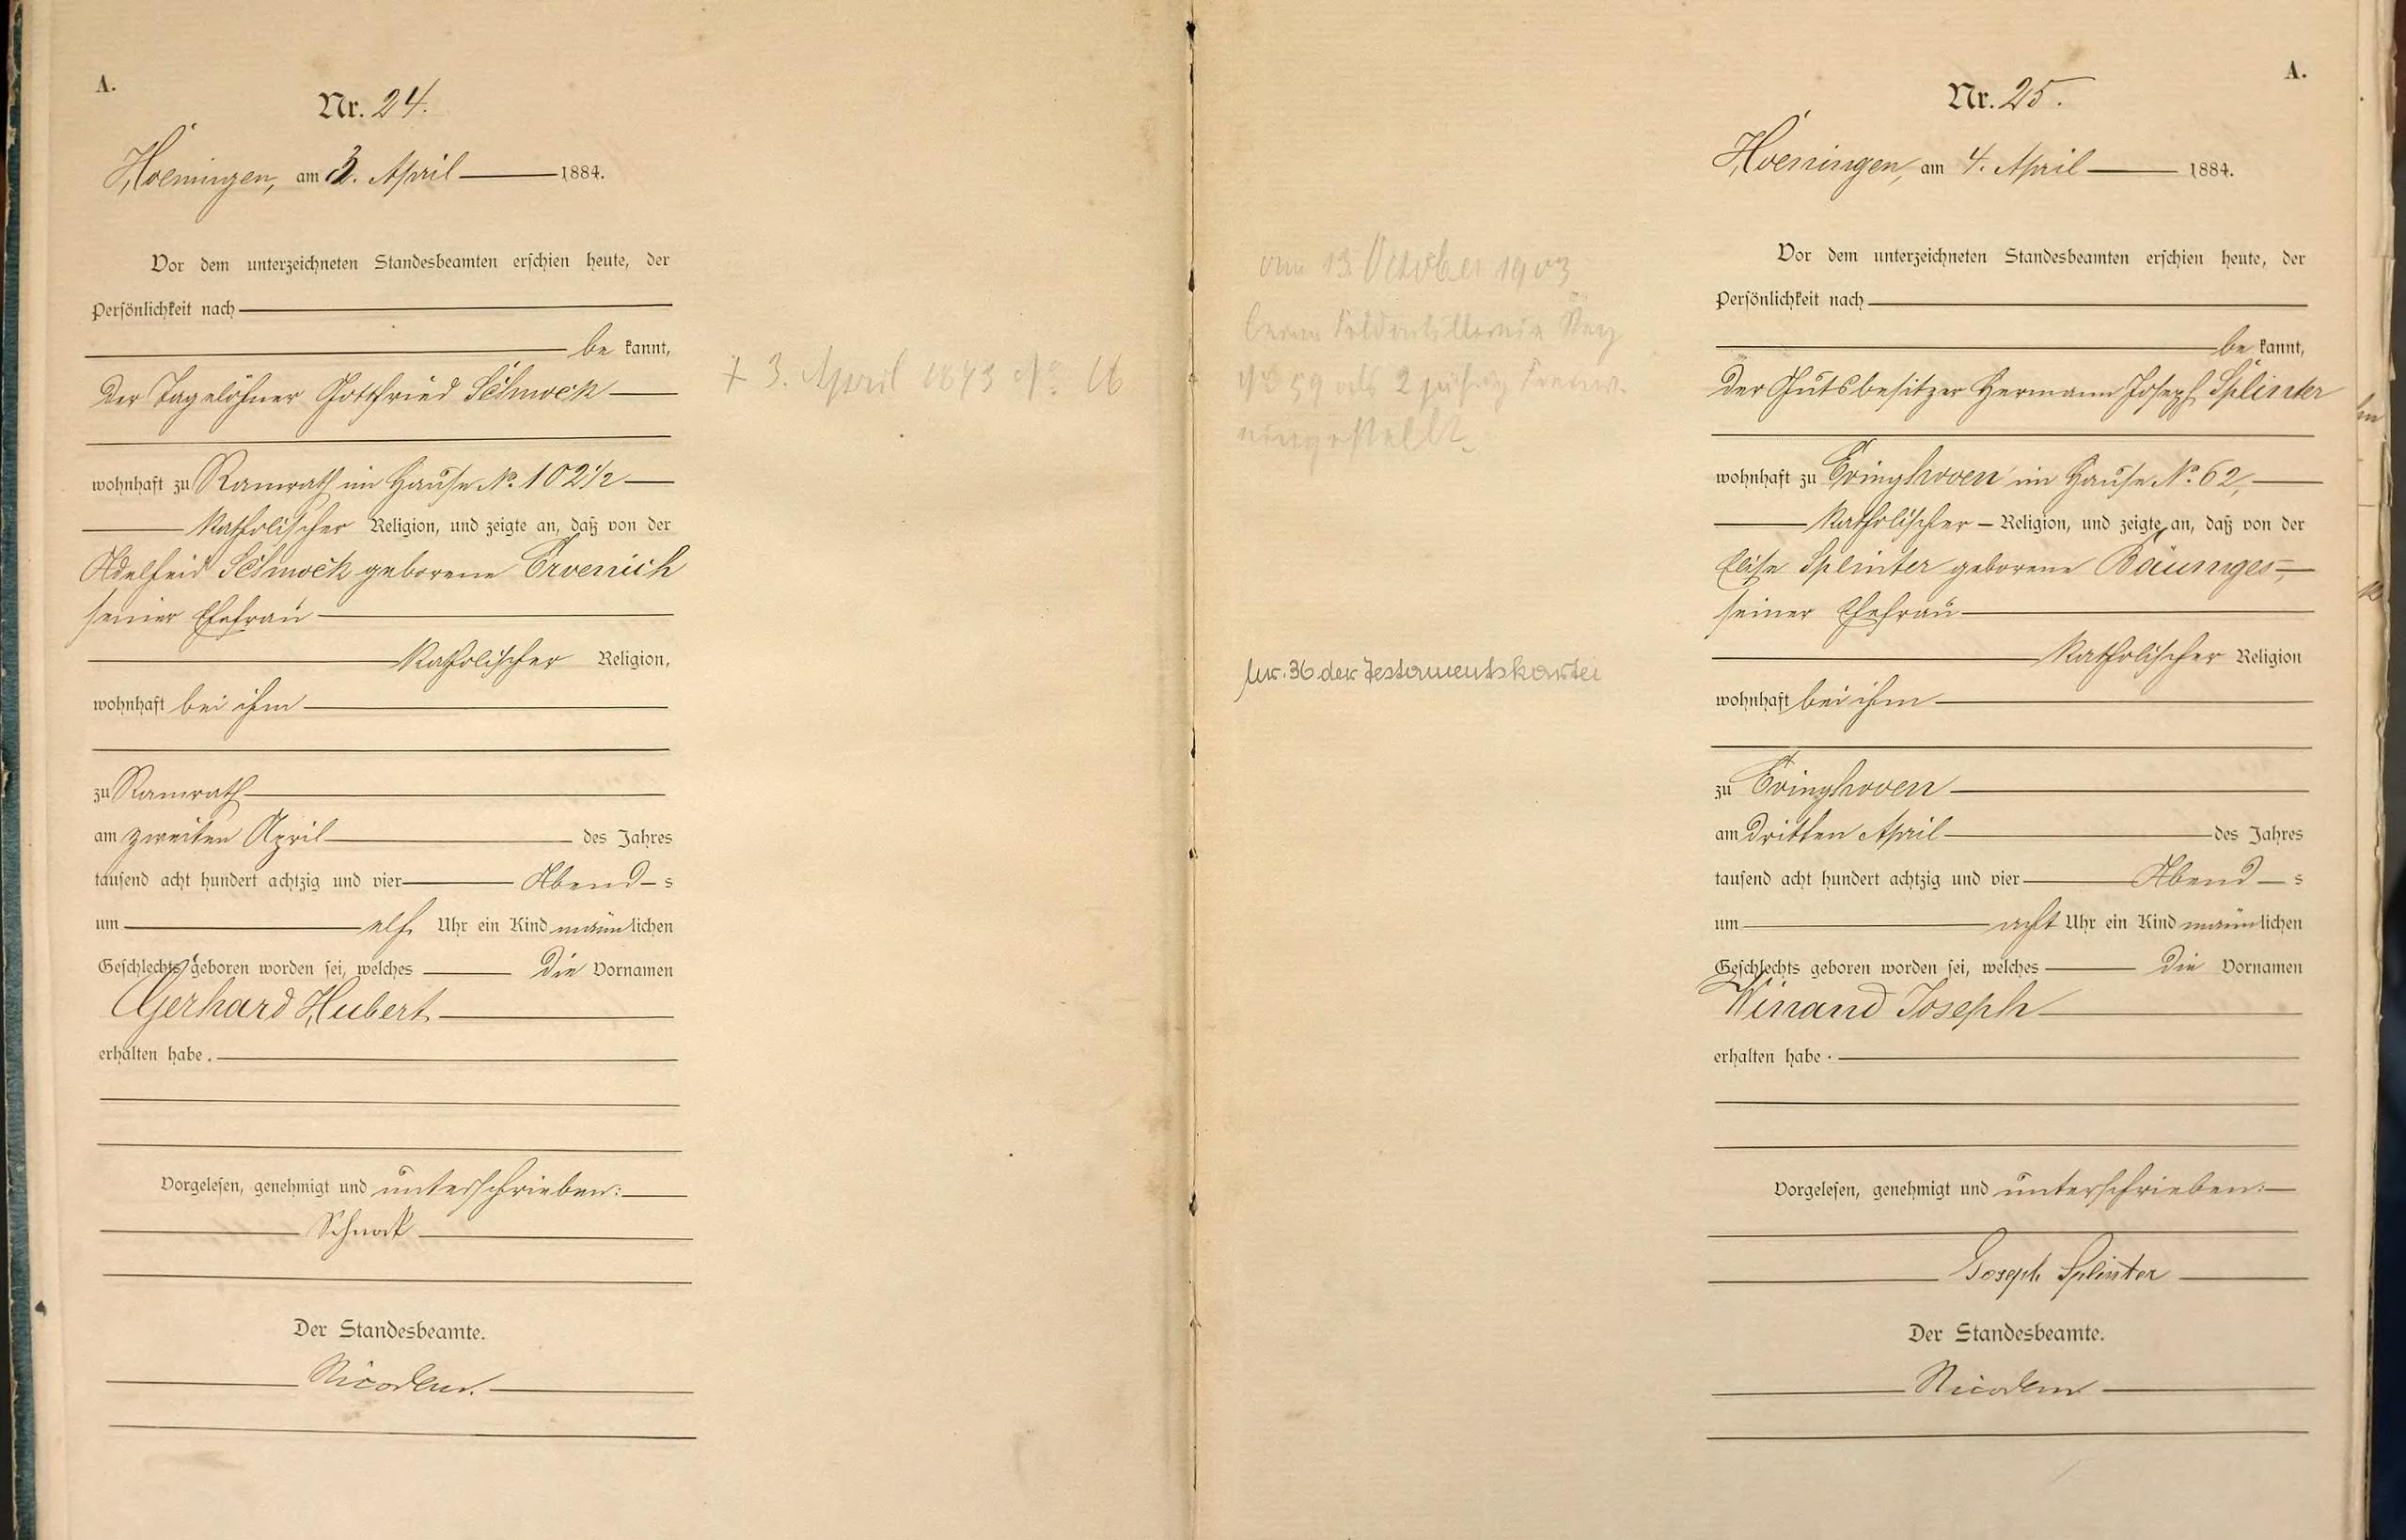 A.
Nr. 24.
Hoeningen, am 3. April 1884.
Vor dem unterzeichneten Standesbeamten erschien heute, der
Persönlichkeit nach
be kannt,
der Tagelöhner Gottfried Schmock
wohnhaft zu Ramrath im Hause No. 102 1/2
katholischer Religion, und zeigte an, daß von der
Adelheid Schmock geborene Ervenich
seiner Ehefrau
katholischer Religion,
wohnhaft bei ihm
zu Ramrath
am zweiten April des Jahres
tausend acht hundert achtzig und vier Abend s
um elf Uhr ein Kind männlichen
Geschlechts geboren worden sei, welches die Vornamen
Gerhard Hubert
erhalten habe.
Vorgelesen, genehmigt und unterschrieben:
Der Standesbeamte.
Nicodem.
+ 3. April No 16
am 13. October 1903
beim Feldartillerie Reg
No 59 als 2 jährig
eingestellt.
Nr. 36 der Testamentskartei
A.
Nr. 25.
Hoeningen, am 4. April 1884.
Vor dem unterzeichneten Standesbeamten erschien heute, der
Persönlichkeit nach
be kannt,
der Gutsbesitzer Hermann Joseph Splinter
wohnhaft zu Evinghoven im Hause No. 62,
katholischer Religion, und zeigte an, daß von der
Elise Splinter geborene Bäumges,
seiner Ehefrau
katholischer Religion
wohnhaft bei ihm
zu Evinghoven
am dritten April des Jahres
tausend acht hundert achtzig und vier Abend s
um acht Uhr ein Kind männlichen
Geschlechts geboren worden sei, welches die Vornamen
Winand Joseph
erhalten habe.
Vorgelesen, genehmigt und unterschrieben:
Joseph Splinter
Der Standesbeamte.
Nicodem